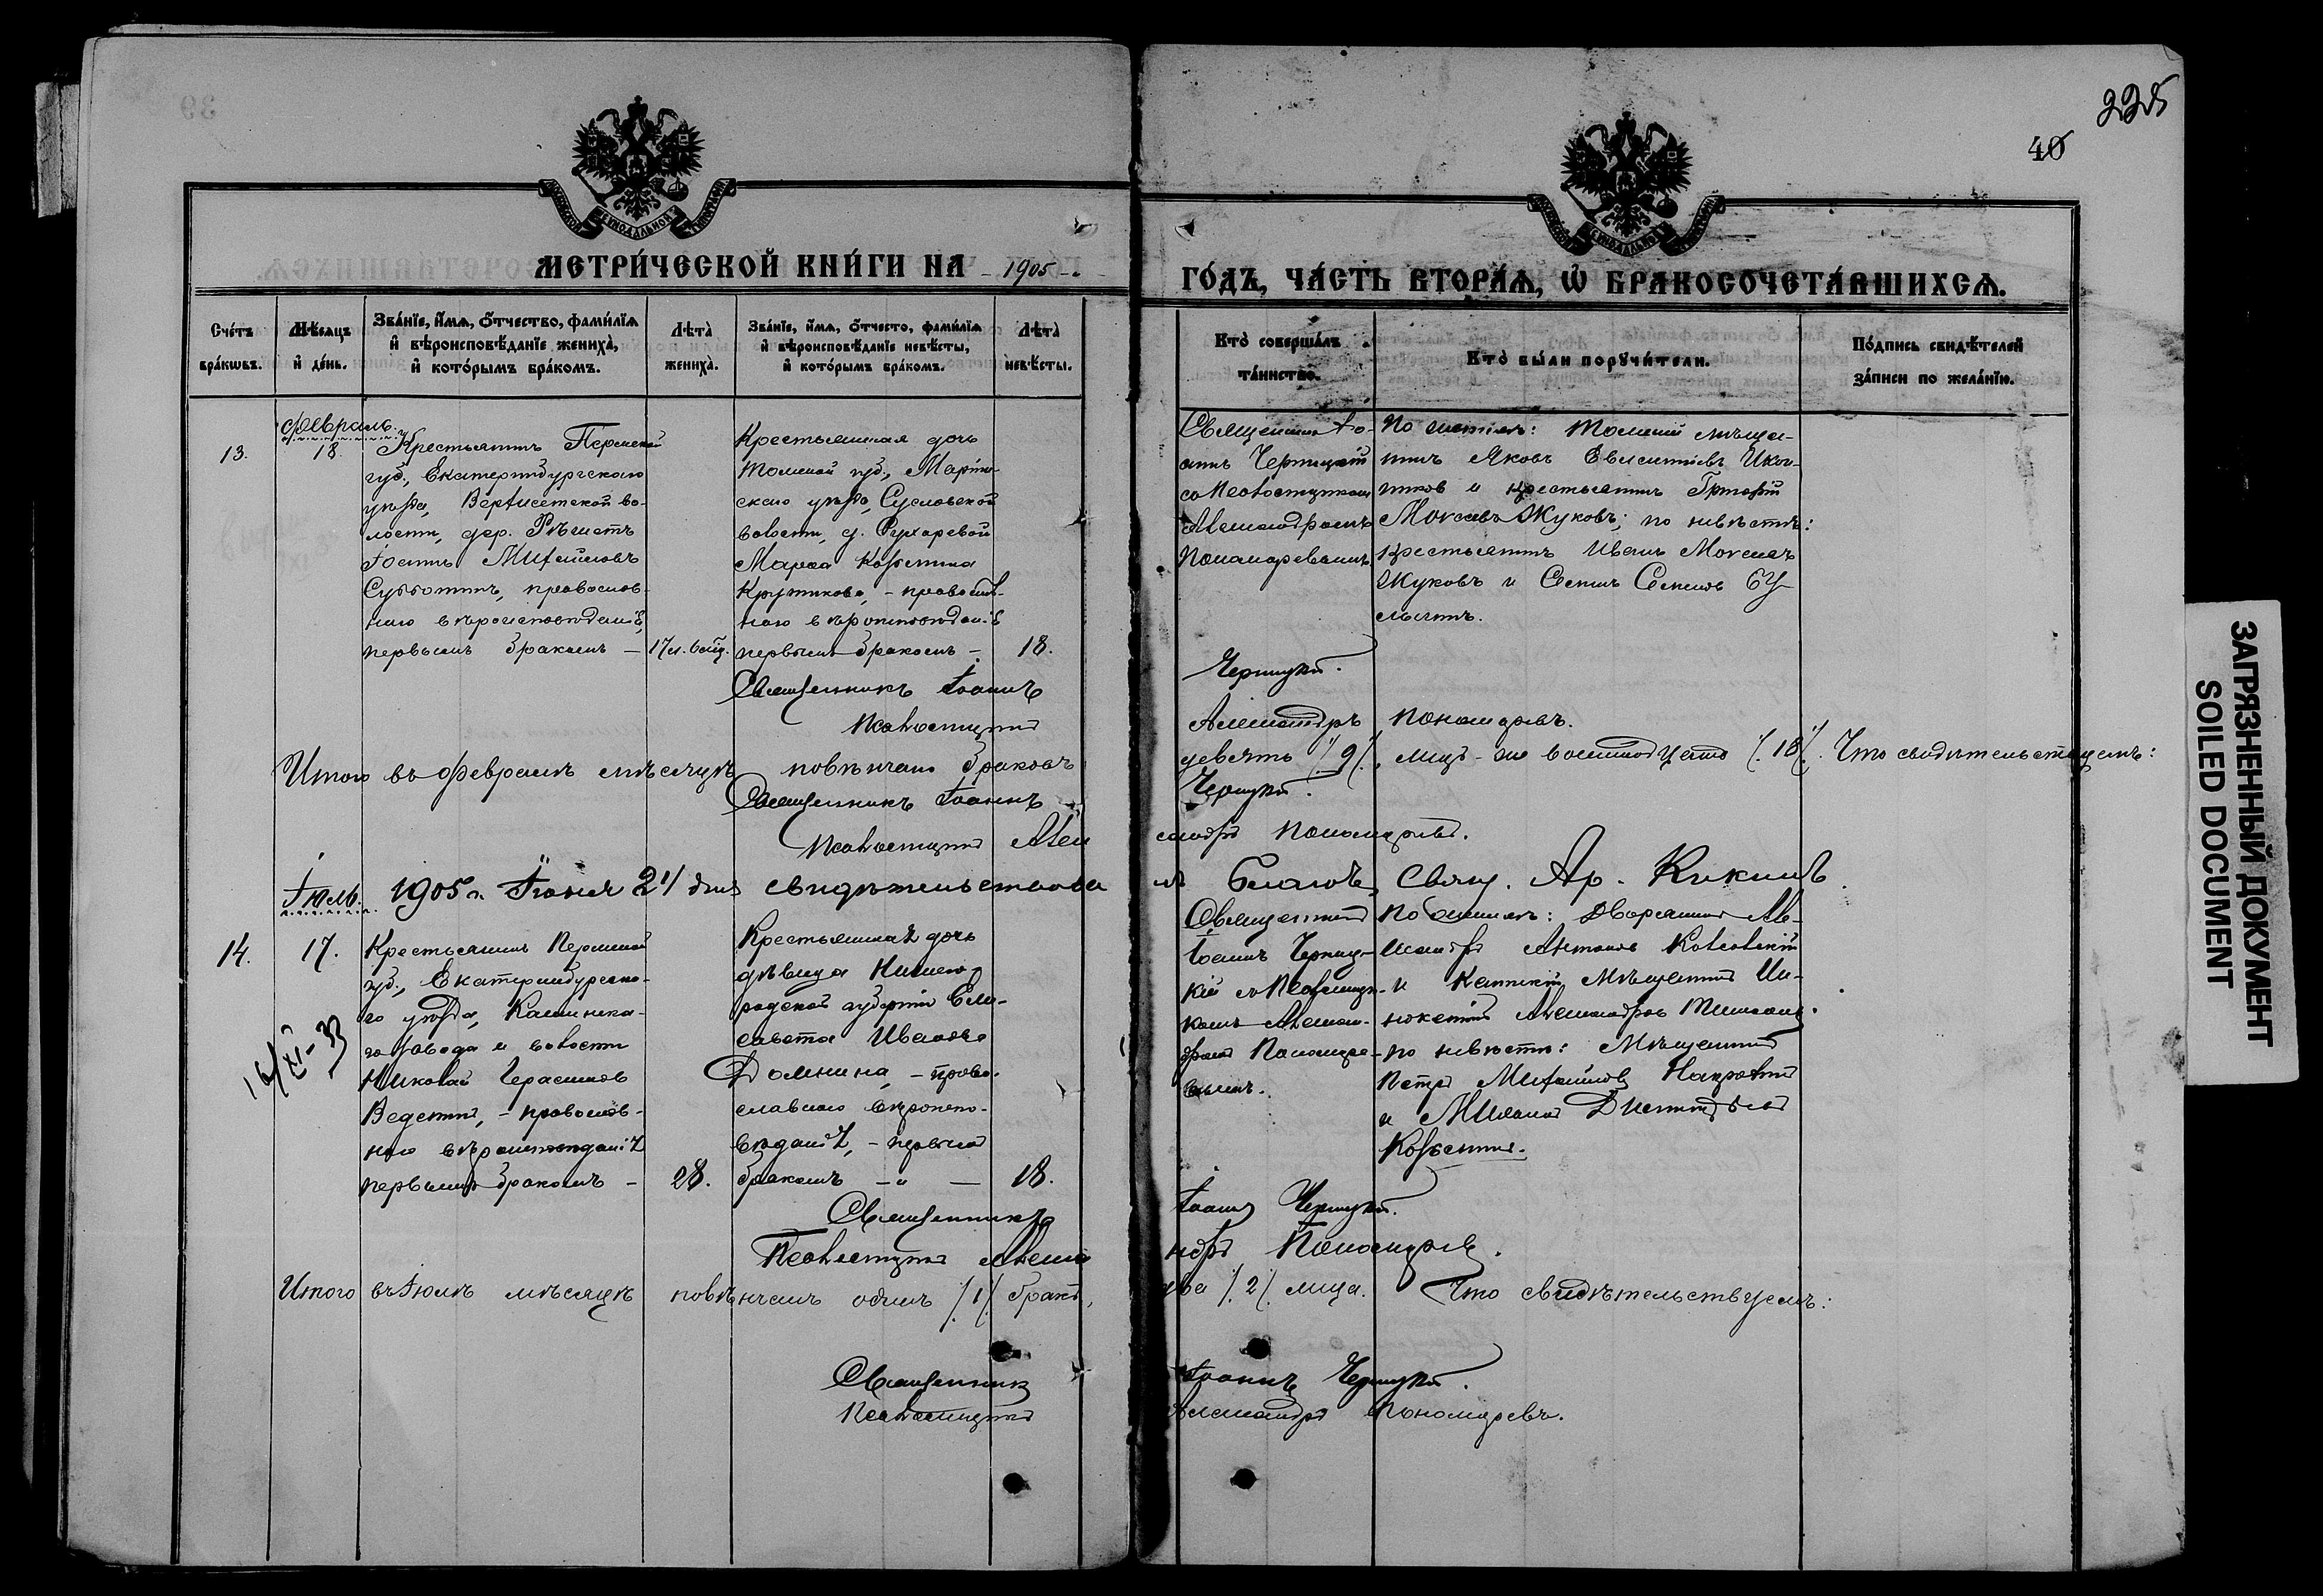 225
40
39
МЕТРИ́ЧЕСКОЙ КНИ́ГИ НА - 1905 - .
ГО́ДЪ, ЧА́СТЬ ВТОРА́Ѧ, Ѽ БРАКОСОЧЕТА́ВШИХСѦ.
Сче́тъ бра́кωвъ.
Мѣ́сѧцъ и҆ де́нь.
Зва́нїе, и҆́мѧ, ѻ҆́тчество, фами́лїѧ
и҆ вѣроисповѣ́данїе жениха̀,
и҆ кото́рымъ бра́комъ.
Лѣта̀ жениха̀.
Зва́нїе, и҆́мѧ, ѻ҆́тчесто, фами́лїѧ
и҆ вѣроисповѣ́данїе невѣ́сты,
и҆ кото́рымъ бра́комъ.
Лѣта̀ невѣ́сты.
Кто̀ соверша́лъ
та́инство.
Кто̀ бы́ли порꙋчи́тели.
По́дпись свидѣ́телей
за́писи по жела́нїю.
Февраль.
13.
18.
Крестьянинъ Пермской
губ., Екатеринбургскаго
уѣзда, Верхисетской во-
лости, дер. Рѣшетъ
Іоаннъ Михайловъ
Субботинъ, православ-
наго вѣроисповѣданія,
первымъ бракомъ —
17 л.
Крестьянская дочь
Томской губ., Маріин-
скаго уѣзда, Сусловской
волости, д.
Марѳа
Кругликова, - православ-
наго вѣроисповѣданія
первымъ бракомъ -
18.
Священникъ Іо-
аннъ Черницкій
со Псаломщикомъ
Александромъ
Пономаревымъ
По женихѣ: Томскій мѣща-
нинъ Яковъ
и крестьянинъ Григорій
Жуковъ; по невѣстѣ:
крестьянинъ Иванъ
Жуковъ и
Священникъ Іоаннъ Черницкій.
Псаломщикъ Александръ Пономаревъ.
Итого въ Февралѣ мѣсяцѣ повѣнчано браковъ девять /9/, лицъ - же восемнадцать /18/. Что свидѣтельствуемъ:
Священникъ Іоаннъ Черницкій.
Псаломщикъ Александръ Пономаревъ.
1905 г. Іюня 21 дня свидѣтельствовалъ Благоч. Свящ. Ар.
Іюль.
14.
17.
Крестьянинъ Пермской
губ., Екатеринбургска-
го уѣзда,
завода и волости
Николай Герасимовъ
- православ-
наго вѣроисповѣданія
первымъ бракомъ -
28.
Крестьянская дочь
дѣвица Нижего-
родской губерніи Ели-
савета Иванова
Домнина, - право-
славнаго вѣроиспо-
вѣданія, - первымъ
бракомъ — " —
18.
Священникъ
Іоаннъ Черниц-
кій съ Псаломщи-
комъ Алексан-
дромъ Пономаре-
вымъ.
По женихѣ: Дворянинъ Але-
ксандръ Антоновъ
и Каинскій мѣщанинъ Ин-
нокентій Александровъ
по невѣстѣ: Мѣщанинъ
Петръ Михайловъ
и
16/XI-33
Священникъ Іоаннъ Черницкій.
Псаломщикъ Александръ Пономаревъ.
Итого въ Іюлѣ мѣсяцѣ повѣнчанъ одинъ /1/ бракъ, два /2/ лица. Что свидѣтельствуемъ:
Священникъ Іоаннъ Черницкій.
Псаломщикъ Александръ Пономаревъ.
ЗАГРЯЗНЕННЫЙ ДОКУМЕНТ
SOILED DOCUMENT